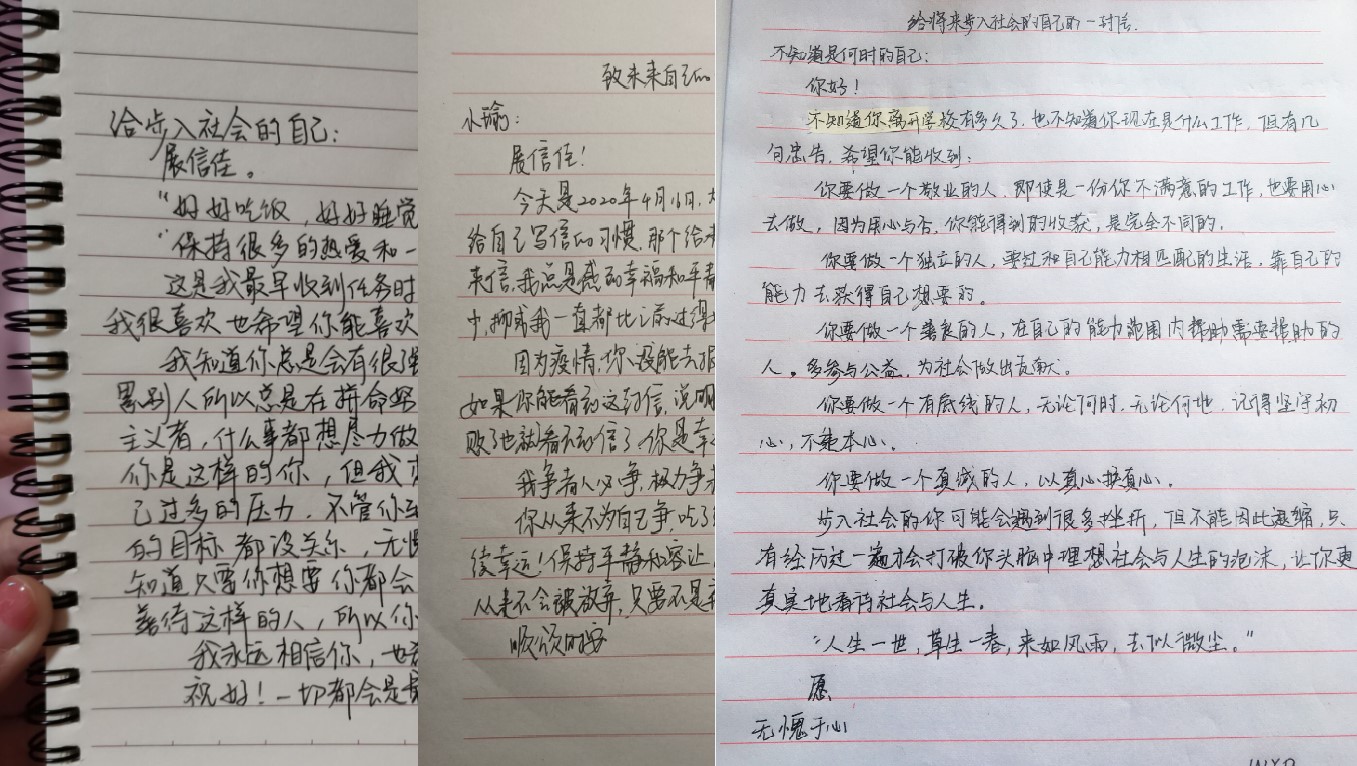 给步入社会的自己:
展信佳。
“好好吃饭,好好睡觉
“保持很多的热爱和一
这是我最早收到任务时
我很喜欢也希望你能喜欢
我知道你总是会有很强
累别人所以总是在拼命努
主义者,什么事都想尽力做
你是这样的你,但我
己过多的压力.不管你
的目标都没关系,无
知道只要你想要你都会
善待这样的人,所以你
我永远相信你,也
祝好!一切都会是
致未来自己的
小瑜:
展信佳!
今天是2020年4月16日.
给自己写信的习惯.那个给
来信,我总是感到幸福和平静
少,挪威我一直都比之前过得
因为疫情,你没能去
如果你能看到这封信,说明
败了也就看不到信了.你是幸
我争者人必争,极力争
你从来不为自己争,吃了
续幸运!保持平静和容让
从来不会被放弃,只要不是
顺颂时安
给将来步入社会的自己的一封信.
不知道是何时的自己:
你好!
不知道你离开学校有多久了.也不知道你现在是什么工作.但有几
句忠告,希望你能收到:
你要做一个敬业的人.即使是一份你不满意的工作,也要用心
去做,因为用心与否.你能得到的收获,是完全不同的.
你要做一个独立的人,要过和自己能力相匹配的生活,靠自己的
能力去获得自己想要的。
你要做一个善良的人,在自己的能力范围内帮助需要帮助的
人。多参与公益,为社会做出贡献。
你要做一个有底线的人,无论何时.无论何地.记得坚守初
心,不違本心.
你要做一个真诚的人,以真心换真心.
步入社会的你可能会遇到很多挫折,但不能因此退缩,只
有经历过一遍才会打破你头脑中理想社会与人生的泡沫,让你更
真实地看待社会与人生.
“人生一世,草生一春,来如风雨,去似微尘.”
愿
无愧于心